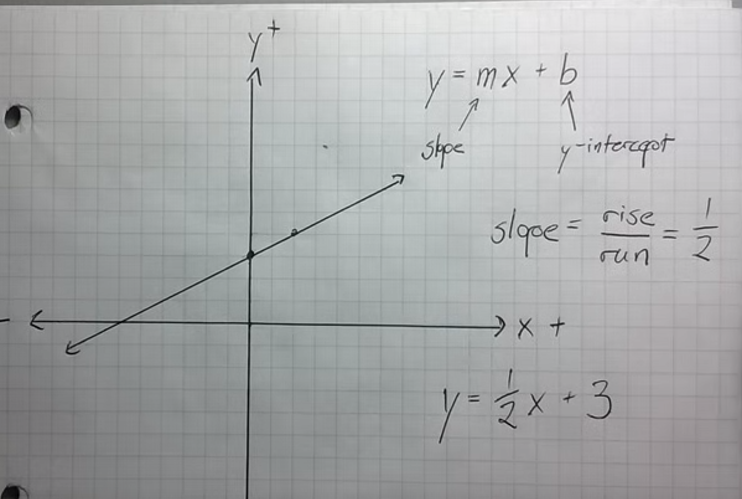 y+
y = mx + b
slope
y-intercept
slope = rise/run = 1/2
- x +
y = 1/2 x + 3